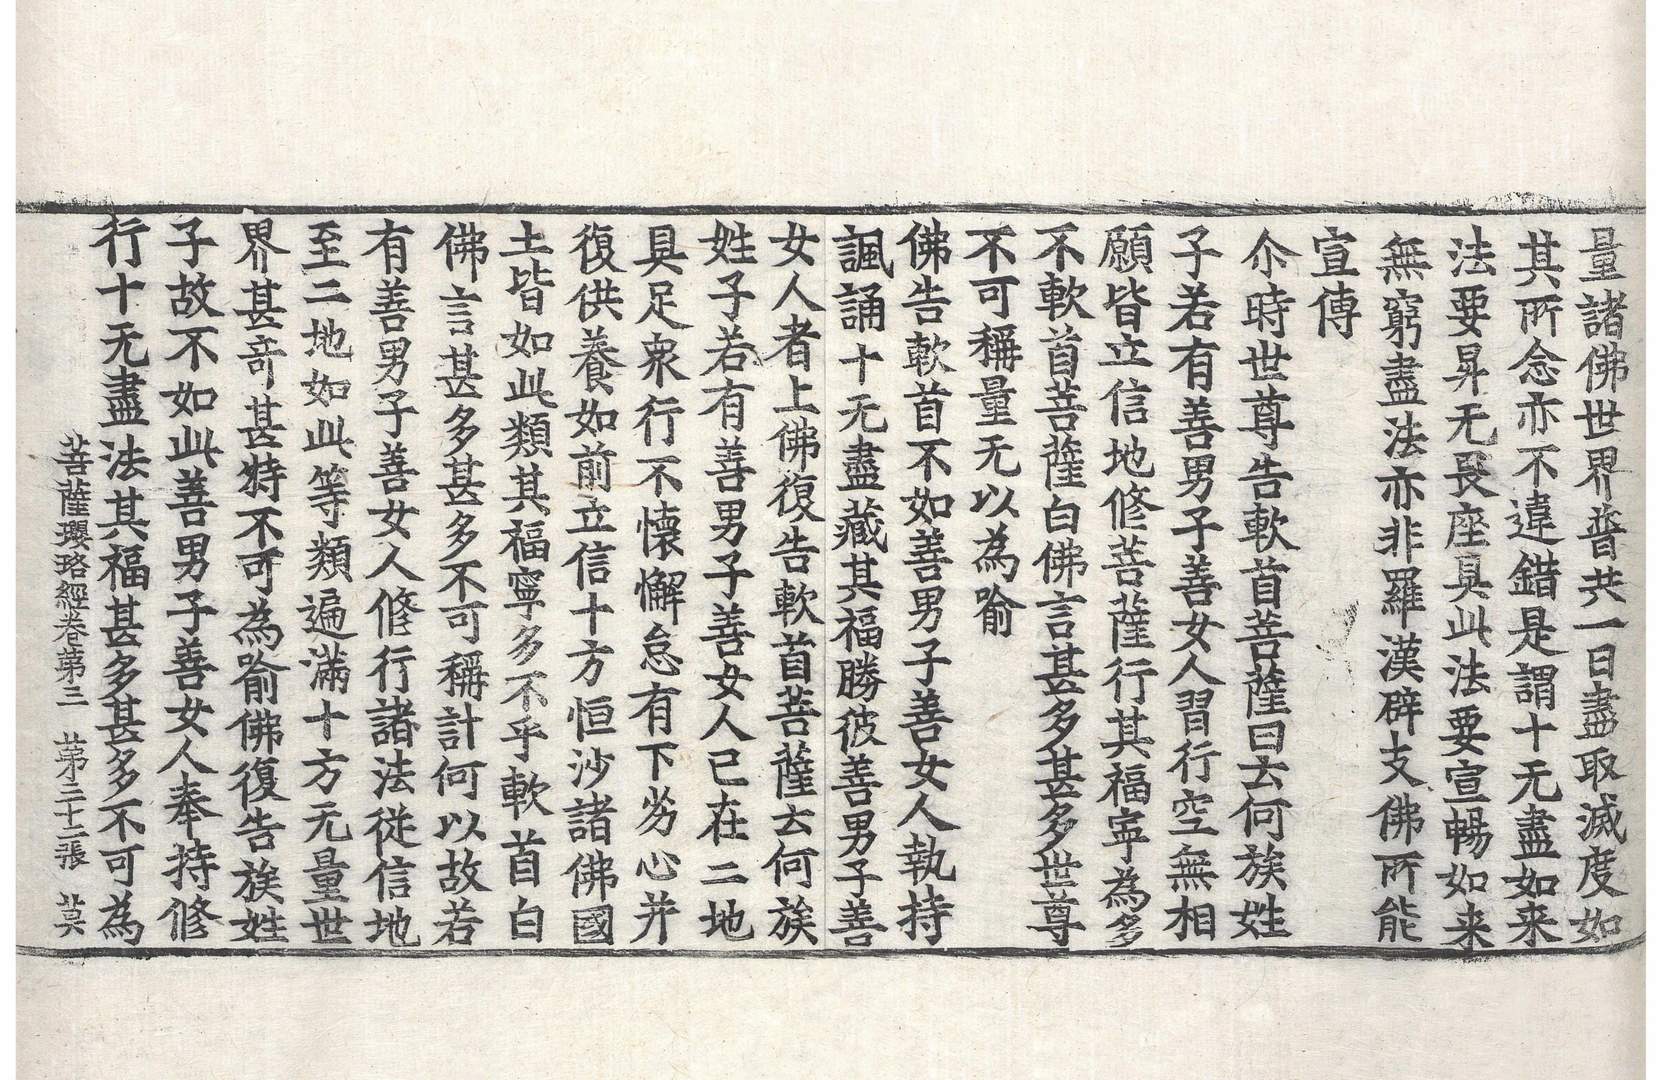 量諸佛世界普共一日盡取滅度如
其所念亦不違錯是謂十无盡如来
法要昇无畏座具此法要宣暢如来
無窮盡法亦非羅漢辟支佛所能
宣傳
尒時世尊告軟首菩薩曰云何族姓
子若有善男子善女人習行空無相
願皆立信地修菩薩行其福寧為多
不軟首菩薩白佛言甚多甚多世尊
不可稱量无以為喻
佛告軟首不如善男子善女人執持
諷誦十无盡藏其福勝彼善男子善
女人者上佛復告軟首菩薩云何族
姓子若有善男子善女人已在二地
具足衆行不懷懈怠有下劣心并
復供養如前立信十方恒沙諸佛國
土皆如此類其福寧多不乎軟首白
佛言甚多甚多不可稱計何以故若
有善男子善女人修行諸法從信地
至二地如此等類遍滿十方无量世
界甚奇甚特不可為喻佛復告族姓
子故不如此善男子善女人奉持修
行十无盡法其福甚多甚多不可為
菩薩瓔珞經卷第三　第二十二張　莫